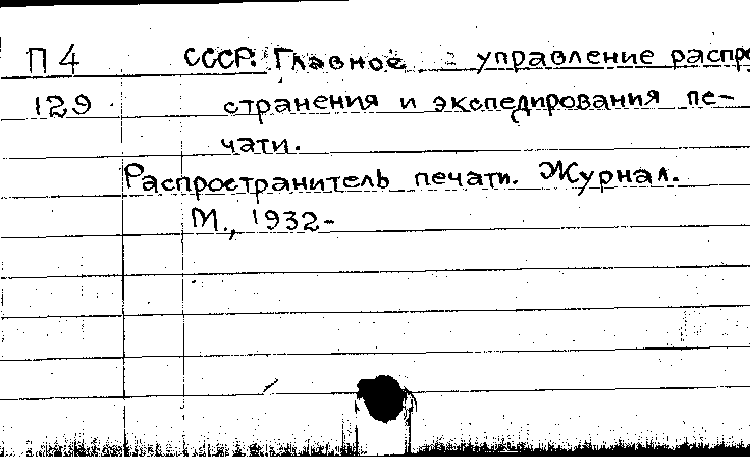 П 4 СССР. Главное управление распро
129 странения и экспедирования пе-
чати.
Распространитель печати. Журнал.
М., 1932-